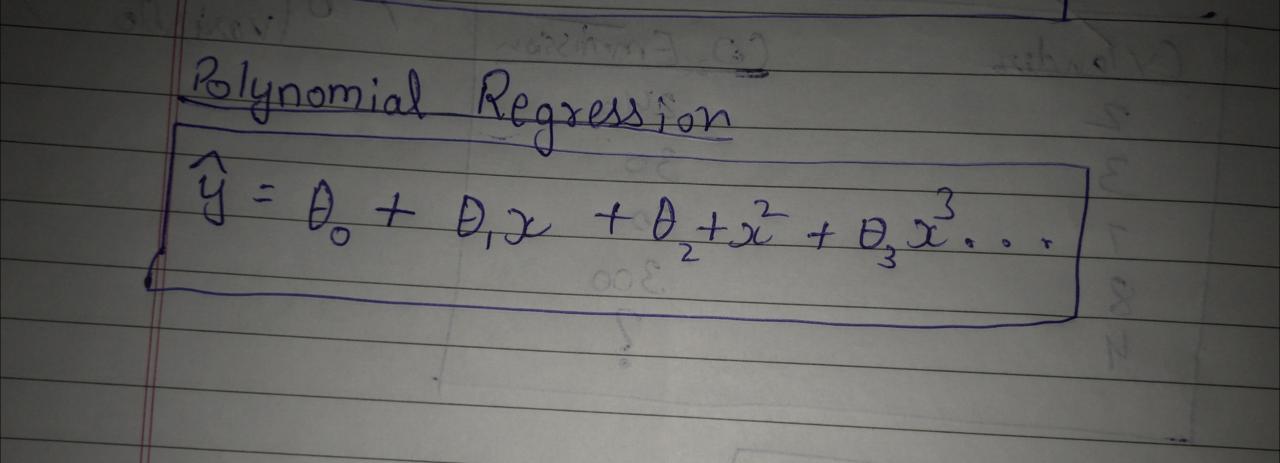 Polynomial Regression
ŷ = θ₀ + θ₁x + θ₂+x² + θ₃x³...